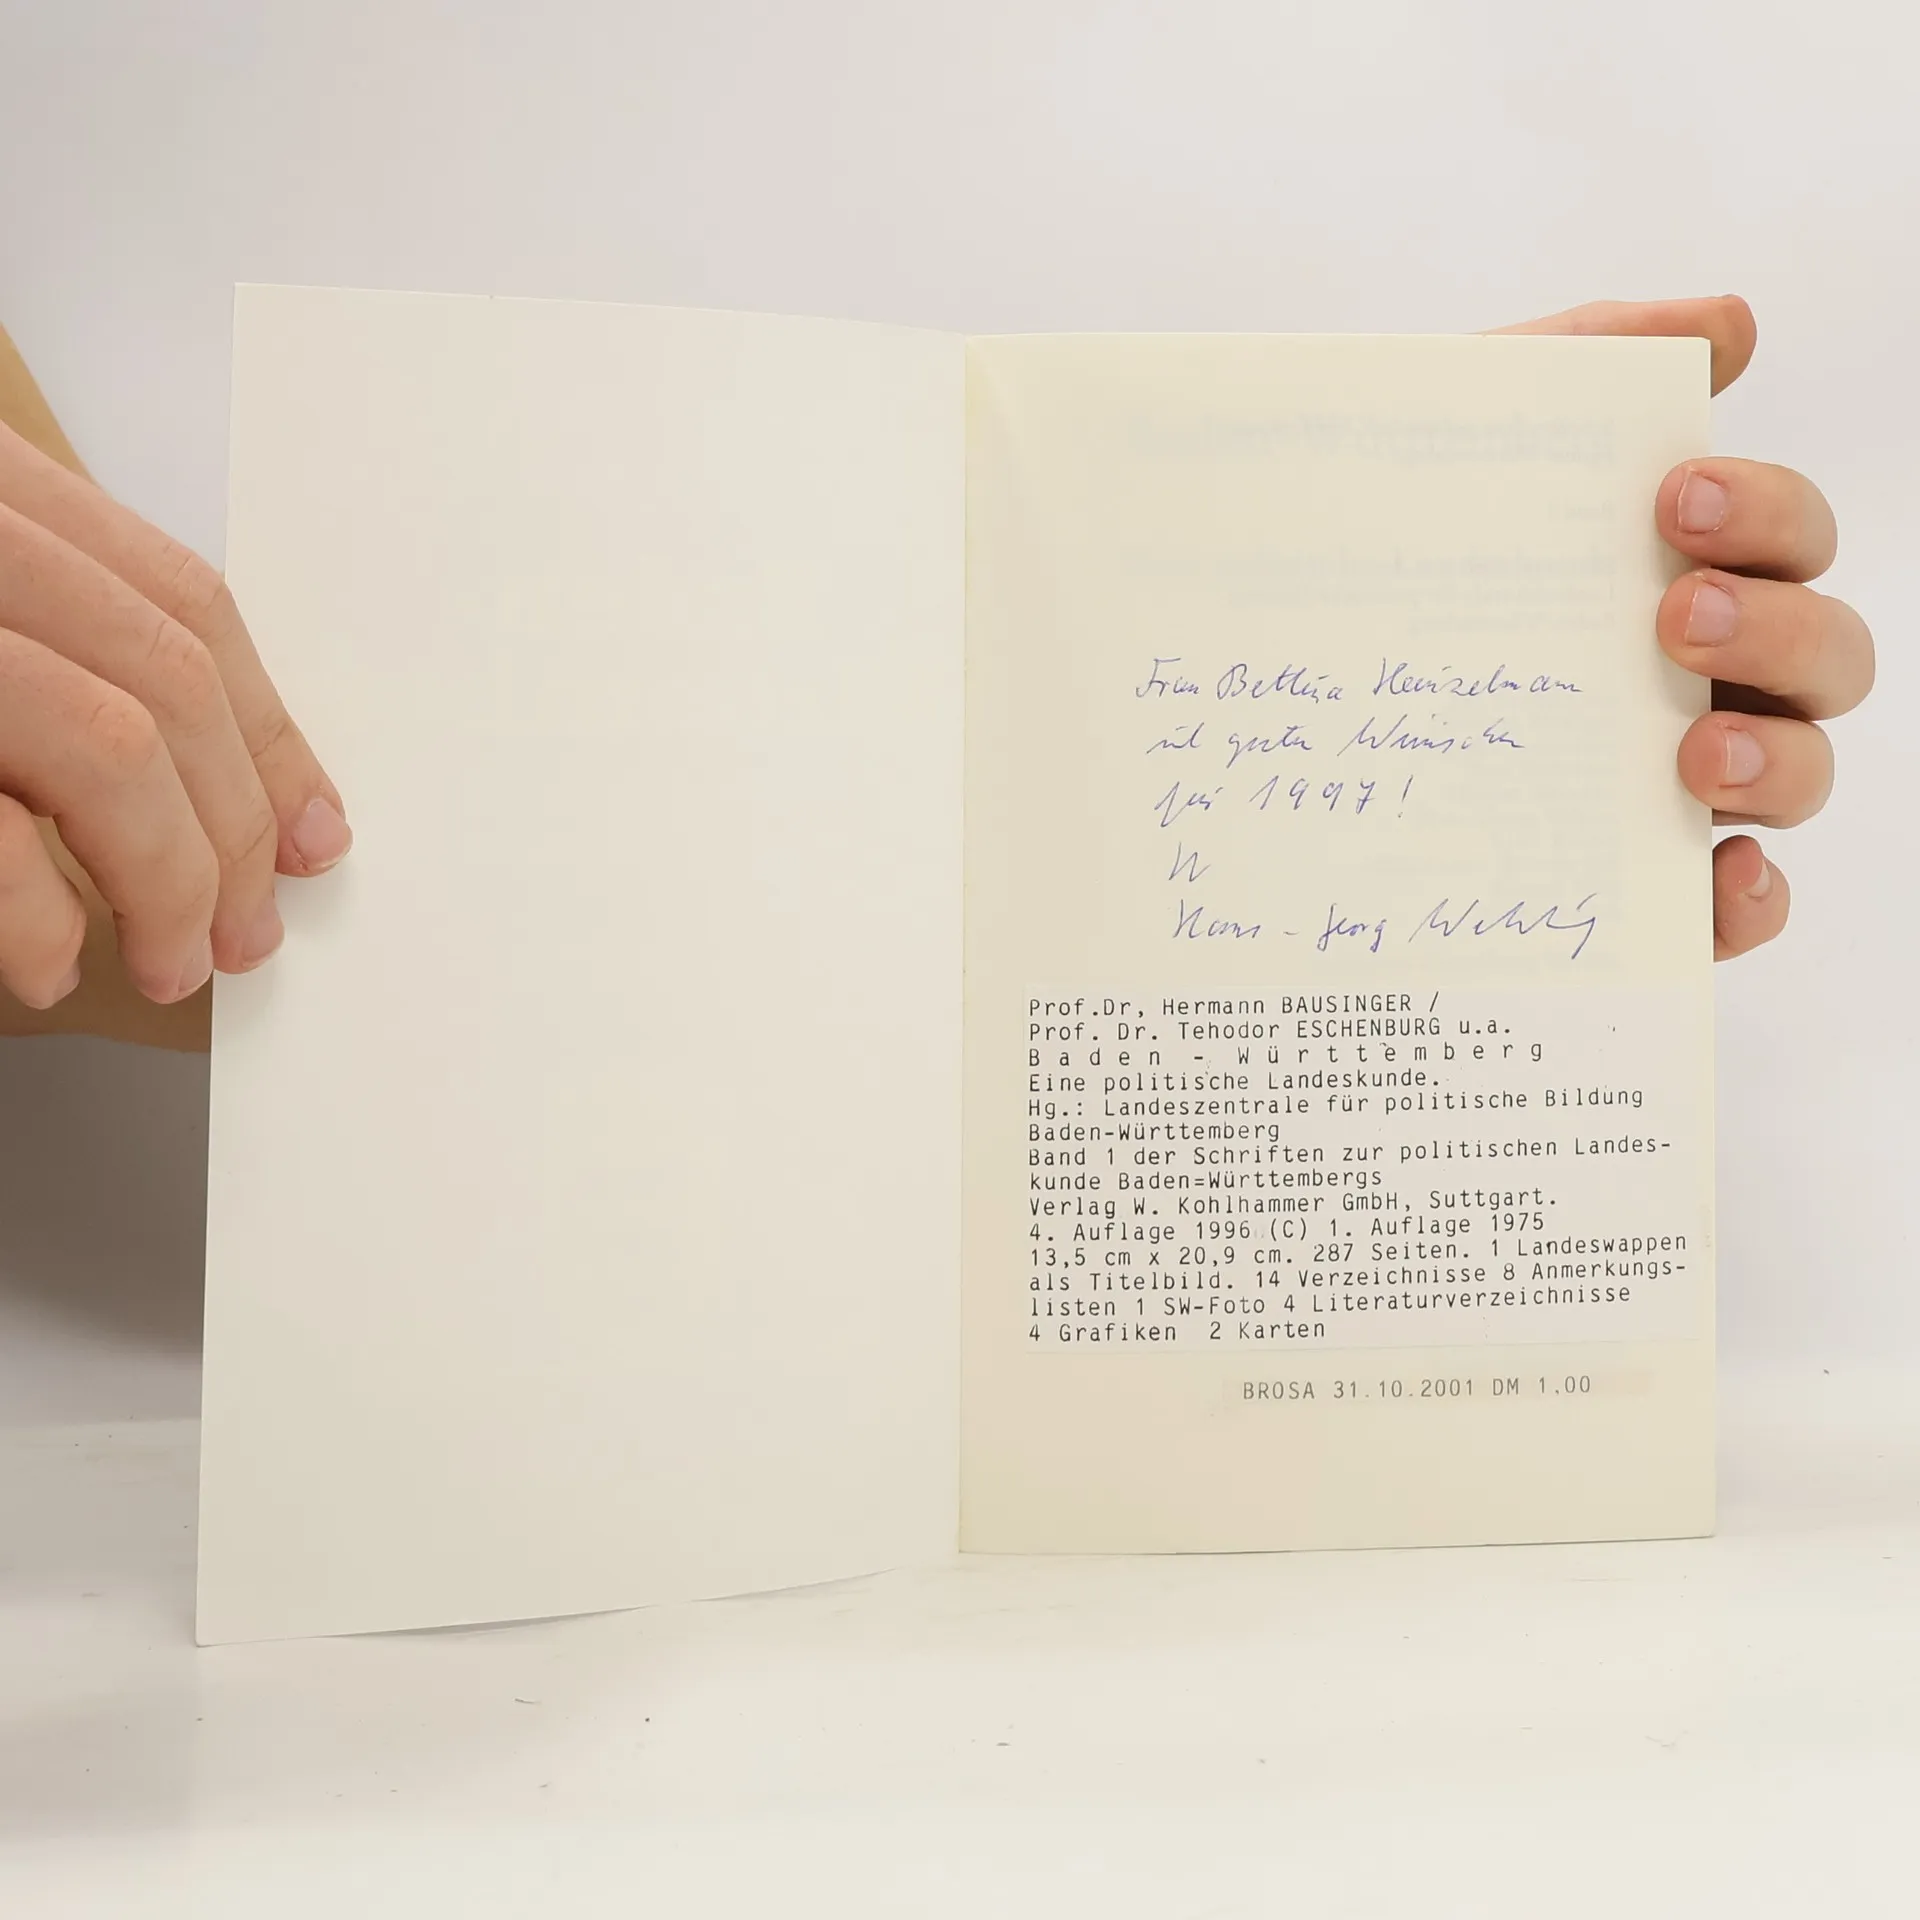 Frau Bettina Heinzelmann
mit guten Wünschen
für 1997!
Hans-Georg Wehling
Prof.Dr, Hermann BAUSINGER /
Prof. Dr. Tehodor ESCHENBURG u.a.
B a d e n - W ü r t t e m b e r g
Eine politische Landeskunde.
Hg.: Landeszentrale für politische Bildung
Baden-Württemberg
Band 1 der Schriften zur politischen Landes-
kunde Baden=Württembergs
Verlag W. Kohlhammer GmbH, Suttgart.
4. Auflage 1996 (C) 1. Auflage 1975
13,5 cm x 20,9 cm. 287 Seiten. 1 Landeswappen
als Titelbild. 14 Verzeichnisse 8 Anmerkungs-
listen 1 SW-Foto 4 Literaturverzeichnisse
4 Grafiken 2 Karten
BROSA 31.10.2001 DM 1,00